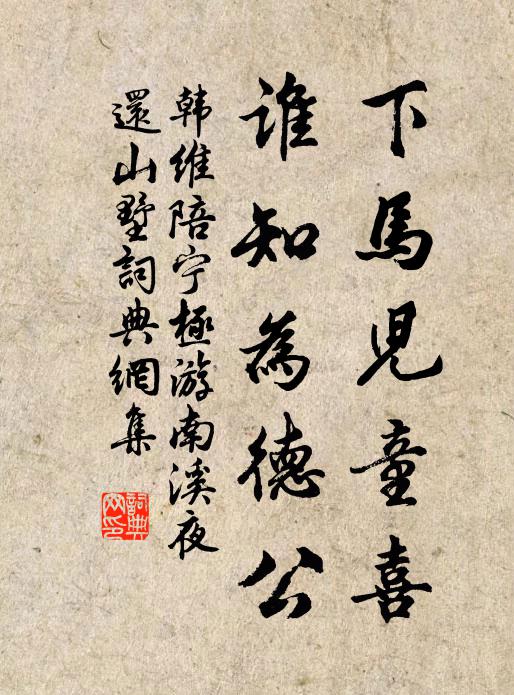 下馬児童喜
谁知為德公
韩维陪宁極游南溪夜
還山墅詞典網集
詞典网印